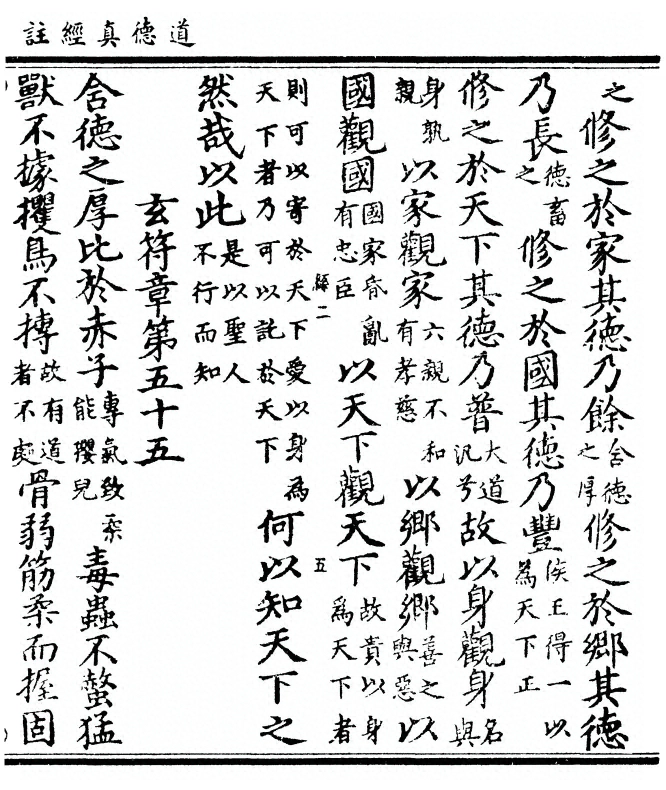 道德真經註
之修之於家其德乃餘含德之厚修之於鄉其德
乃長德畜之修之於國其德乃豐侯王得一以為天下正
修之於天下其德乃普大道汎兮故以身觀身名與
身孰親以家觀家六親不和有孝慈以鄉觀鄉善之與惡以
國觀國國家昏亂有忠臣以天下觀天下故貴以身為天下者
二
五
則可以寄於天下愛以身為天下者乃可以託於天下何以知天下之
然哉以此是以聖人不行而知
玄符章第五十五
含德之厚比於赤子專氣致柔能兒毒蟲不螫猛
獸不據攫鳥不搏故有道者不處骨弱筋柔而握固